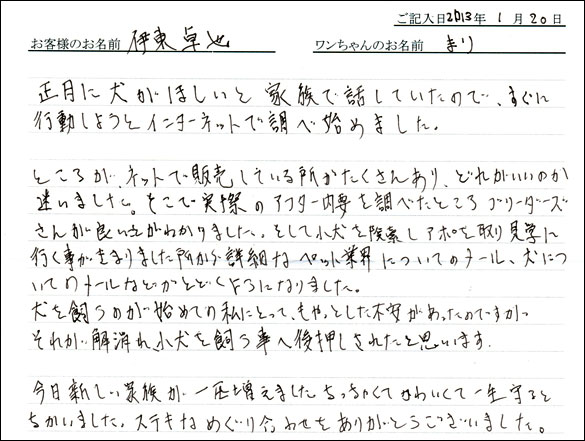 ご記入日2013年 1月20日
お客様のお名前 伊東卓也 ワンちゃんのお名前 まり
正月に犬がほしいと家族で話していたので、すぐに
行動しようとインターネットで調べ始めました。
ところが、ネットで販売している所がたくさんあり、どれがいいのか
迷いました。そこで実際のアフター内容を調べたところブリーダーズ
さんが良い がわかりました。そして小犬を検索しアポを取り見学に
行く事がきまりました所から詳細なペット業界についてのメール、犬につ
いてのメールなどがとどくようになりました。
犬を飼うのが始めての私にとって、もやっとした不安があったのですが
それが解消れ、小犬を飼う事へ後押しされたと思います。
今日新しい家族が一匹増えました。ちっちゃくてかわいくて一生守ると
ちかいました。ステキなめぐり合わせをありがとうございました。